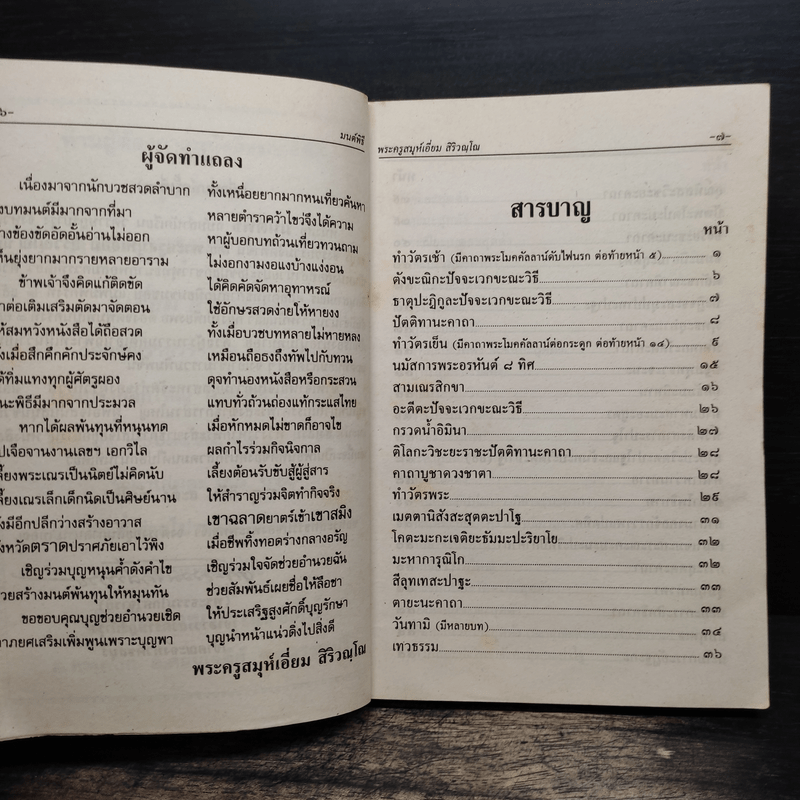 ๖-
มนต์พิธี
ผู้จัดทำแถลง
เนื่องมาจากนักบวชสวดลำบาก ทั้งเหนื่อยยากมากหนเที่ยวค้นหา
บทมนต์มีมากจากที่มา หลายตำราคว้าไขว่จึงได้ความ
างข้องขัดอัดอั้นอ่านไม่ออก หาผู้บอกบทถ้วนเที่ยวทวนถาม
ห็นยุ่งยากมากรายหลายอาราม ไม่งอกงามงอแงบ้างแง่งอน
ข้าพเจ้าจึงคิดแก้ติดขัด ได้คิดคัดจัดหาอุทาหรณ์
าต่อเติมเสริมตัดมาจัดตอน ใช้อักษรสวดง่ายให้หายงง
ห้สมหวังหนังสือได้ถือสวด ทั้งเมื่อบวชบทหลายไม่หายหลง
งเมื่อสึกคึกคักประจักษ์คง เหมือนถือธงถึงทัพไปกับทวน
ด้ทิ่มแทงทุกผู้ศัตรูผอง ดุจทำนองหนังสือหรือกระสวน
นะพิธีมีมากจากประมวล แทบทั่วถ้วนถ่องแท้กระแสไทย
หากได้ผลพ้นทุนที่หนุนทด เมื่อหักหมดไม่ขาดก็อาจไข
ปเจือจานงานเลขฯ เอกวิไล ผลกำไรร่วมกิจนิจกาล
ลี้ยงพระเณรเป็นนิตย์ไม่คิดนับ เลี้ยงต้อนรับขับสู้ผู้สู่สาร
ลี้ยงเณรเล็กเด็กนิดเป็นศิษย์นาน ให้สำราญร่วมจิตทำกิจจริง
งมีอีกปลีกว่างสร้างอาวาส เขาฉลาดยาตร์เข้าเขาสมิง
งหวัดตราดปราศภัยเอาไว้พิง เมื่อชีพทิ้งทอดร่างกลางอรัญ
เชิญร่วมบุญหนุนค้ำดังคำไข เชิญร่วมใจจัดช่วยอำนวยฉัน
วยสร้างมนต์พ้นทุนให้หมุนทัน ช่วยสัมพันธ์เผยชื่อให้ลือชา
ขอขอบคุณบุญช่วยอำนวยเชิด ให้ประเสริฐสูงศักดิ์บุญรักษา
าภยศเสริมเพิ่มพูนเพราะบุญพา บุญนำหน้าแน่วดิ่งไปสิ่งดี
พระครูสมุห์เอี่ยม สิริวณฺโณ
พระครูสมุห์เอี่ยม สิริวณฺโณ -๗-
สารบาญ
หน้า
ทำวัตรเช้า (มีคาถาพระโมคคัลลาน์ดับไฟนรก ต่อท้ายหน้า ๕) ๑
ตังขะณิกะปัจจะเวกขะณะวิธี ๖
ธาตุปะฏิกูละปัจจะเวกขะณะวิธี ๗
ปัตติทานะคาถา ๘
ทำวัตรเย็น (มีคาถาพระโมคคัลลาน์ต่อกระดูก ต่อท้ายหน้า ๑๔) ๙
นมัสการพระอรหันต์ ๘ ทิศ ๑๕
สามเณรสิกขา ๑๖
อะตีตะปัจจะเวกขะณะวิธี ๒๖
กรวดน้ำอิมินา ๒๗
ติโลกะวิชะยะราชะปัตติทานะคาถา ๒๘
คาถาบูชาดวงชาตา ๒๘
ทำวัตรพระ ๒๙
เมตตานิสังสะสุตตะปาโฐ ๓๑
โคตะมะกะเจติยะธัมมะปะริยาโย ๓๒
มะหาการุณิโก ๓๒
สีลุทเทสะปาฐะ ๓๓
ตายะนะคาถา ๓๓
วันทามิ (มีหลายบท) ๓๔
เทวธรรม ๓๖